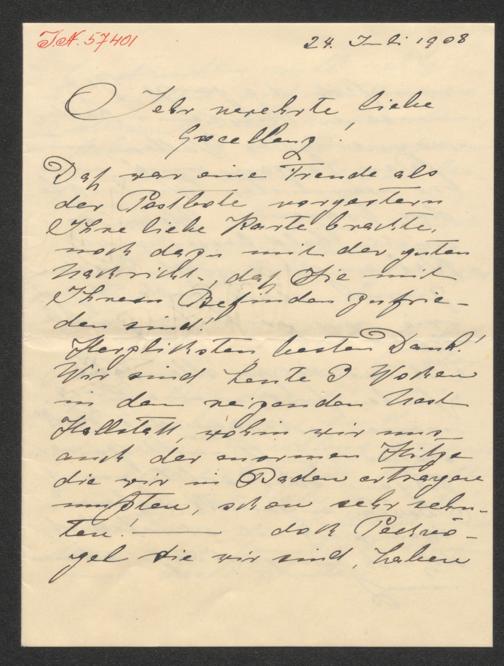 I.N. 57401
24. Juli 1908
Sehr verehrte, liebe
Excellenz!
Daß war eine Freude als
der Postbote vorgestern
Ihre liebe Karte brachte,
noch dazu mit der guten
Nachricht, daß Sie mit
Ihrem Befinden zufrie-
den sind!
Herzlichsten besten Dank!
Wir sind heute 3 Wochen
in dem reizenden Nest
Hallstatt, wohin wir uns
auch der enormen Hitze
die wir in Baden ertragen
mußten, schon sehr sehn-
ten! — doch Pechvö-
gel die wir sind, haben